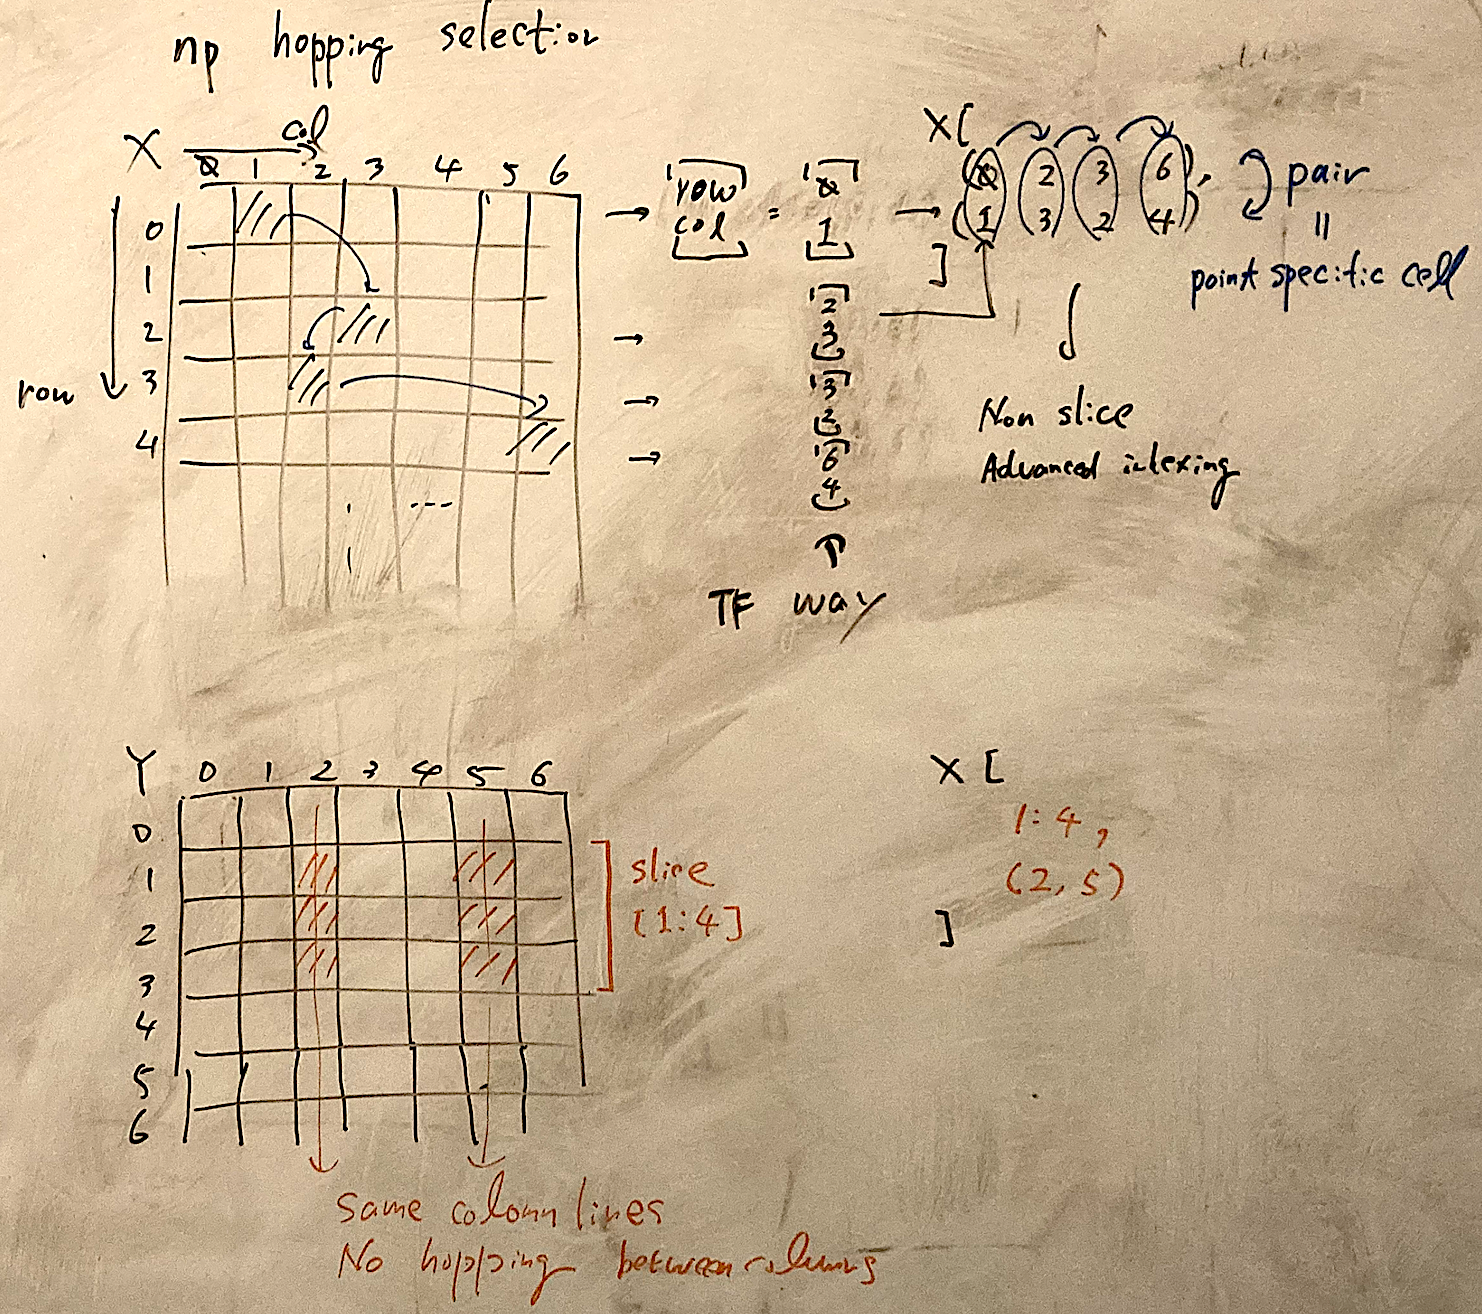 np hopping selection
X col
0 1 2 3 4 5 6
0
1
2
3
4
row
row
col
=
0
1
2
3
3
2
6
4
TF way
X[
(0 2 3 6),
(1 3 2 4)
]
pair
=
point specific cell
Non slice
Advanced indexing
Y 0 1 2 3 4 5 6
0
1
2
3
4
5
6
slice
[1:4]
X [
1:4,
(2,5)
]
Same column lines
No hopping between columns